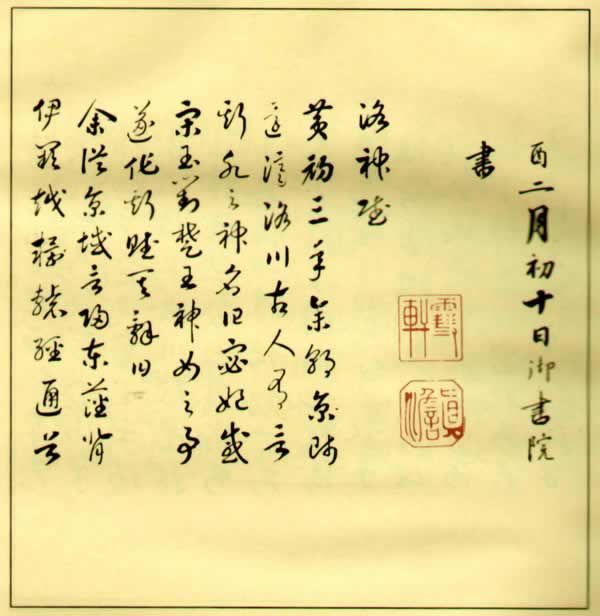 酉二月初十日御書院
書
洛神賦
黄初三年余朝京師
還濟洛川古人有言
斯水之神名曰宓妃感
宋玉對楚王神女之事
遂作斯賦其辭曰
余從京域言歸東藩背
伊闕越轘轅經通谷